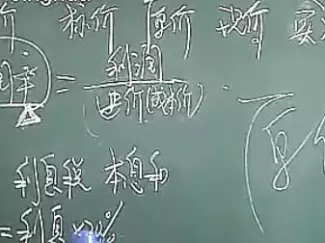 价 标价 原价 现价 实
润率 = 利润
进价(成本价)
原价
利息税 本息和
= 利息×20%